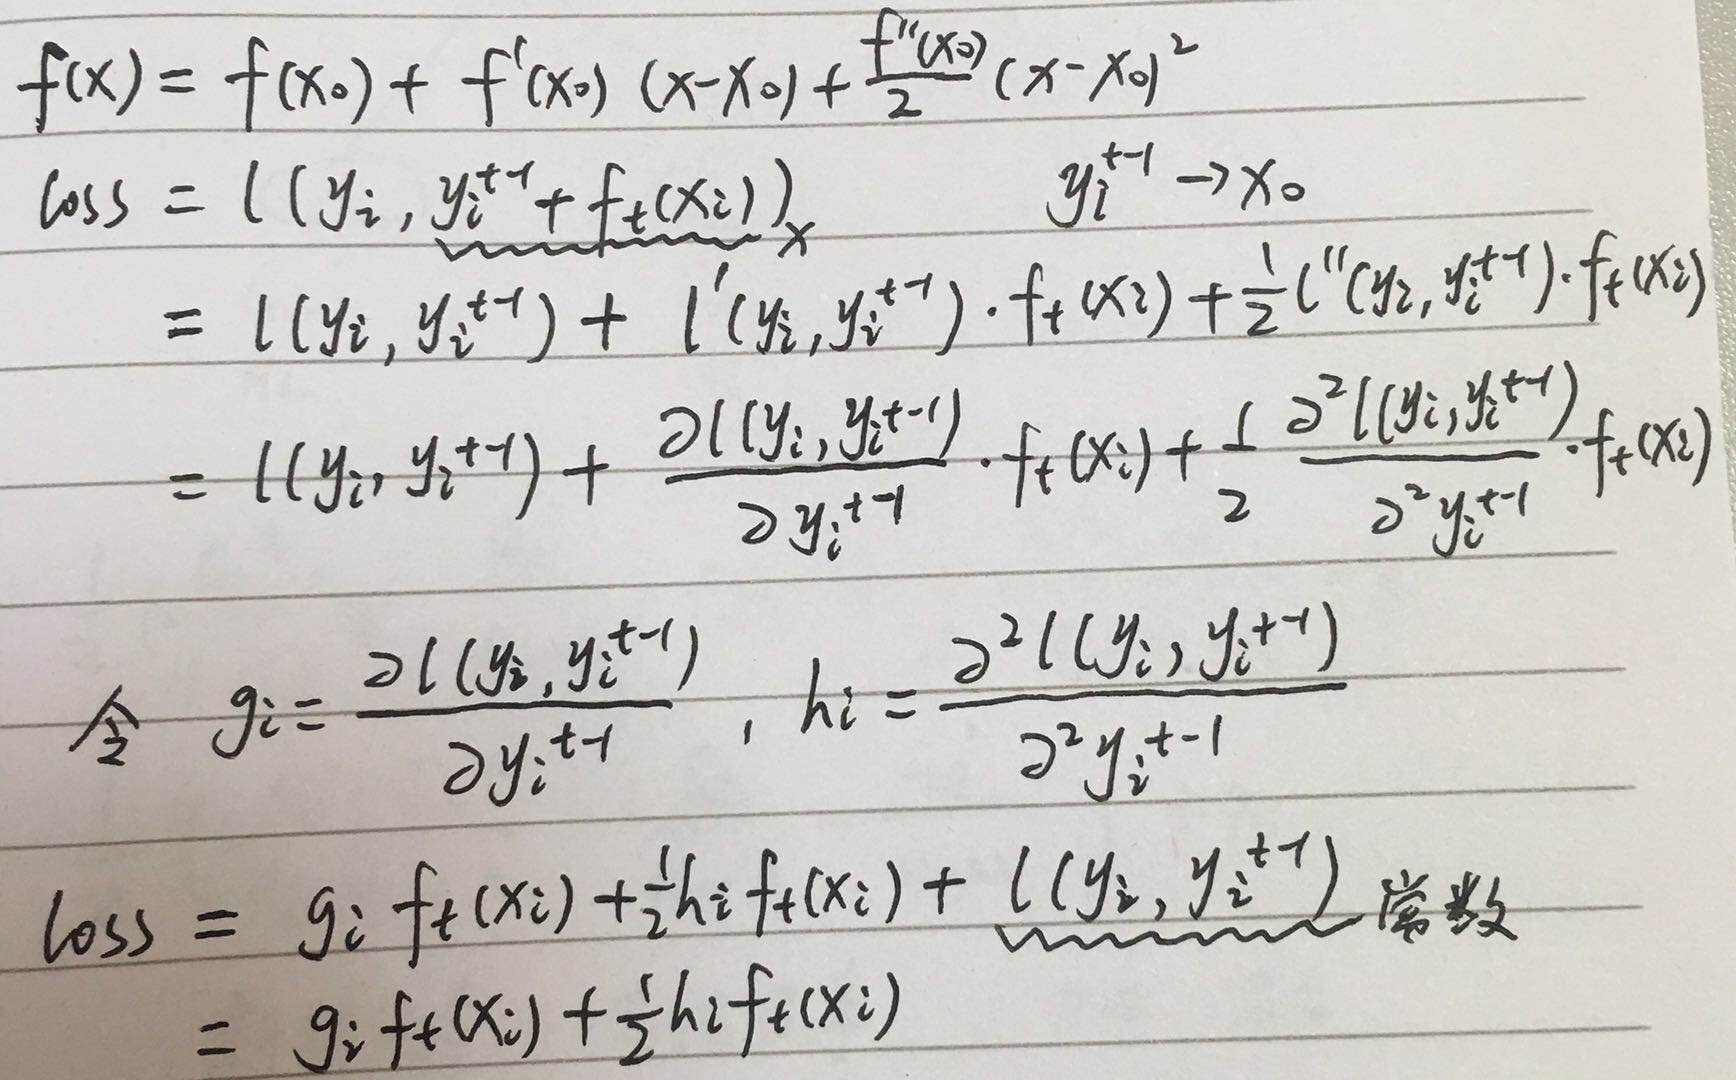 f(x) = f(x₀) + f'(x₀) (x-x₀) + f''(x₀)/2 (x-x₀)²
loss = l(yᵢ, yᵢᵗ⁻¹ + fₜ(xᵢ)) x    yᵢᵗ⁻¹ → x₀
= l(yᵢ, yᵢᵗ⁻¹) + l'(yᵢ, yᵢᵗ⁻¹)·fₜ(xᵢ) + 1/2 l''(yᵢ, yᵢᵗ⁻¹)·fₜ(xᵢ)
= l(yᵢ, yᵢᵗ⁻¹) + ∂l(yᵢ, yᵢᵗ⁻¹)/∂yᵢᵗ⁻¹ ·fₜ(xᵢ) + 1/2 ∂²l(yᵢ, yᵢᵗ⁻¹)/∂²yᵢᵗ⁻¹ ·fₜ(xᵢ)
令 gᵢ = ∂l(yᵢ, yᵢᵗ⁻¹)/∂yᵢᵗ⁻¹ , hᵢ = ∂²l(yᵢ, yᵢᵗ⁻¹)/∂²yᵢᵗ⁻¹
loss = gᵢ fₜ(xᵢ) + 1/2 hᵢ fₜ(xᵢ) + l(yᵢ, yᵢᵗ⁻¹) 常数
= gᵢ fₜ(xᵢ) + 1/2 hᵢ fₜ(xᵢ)